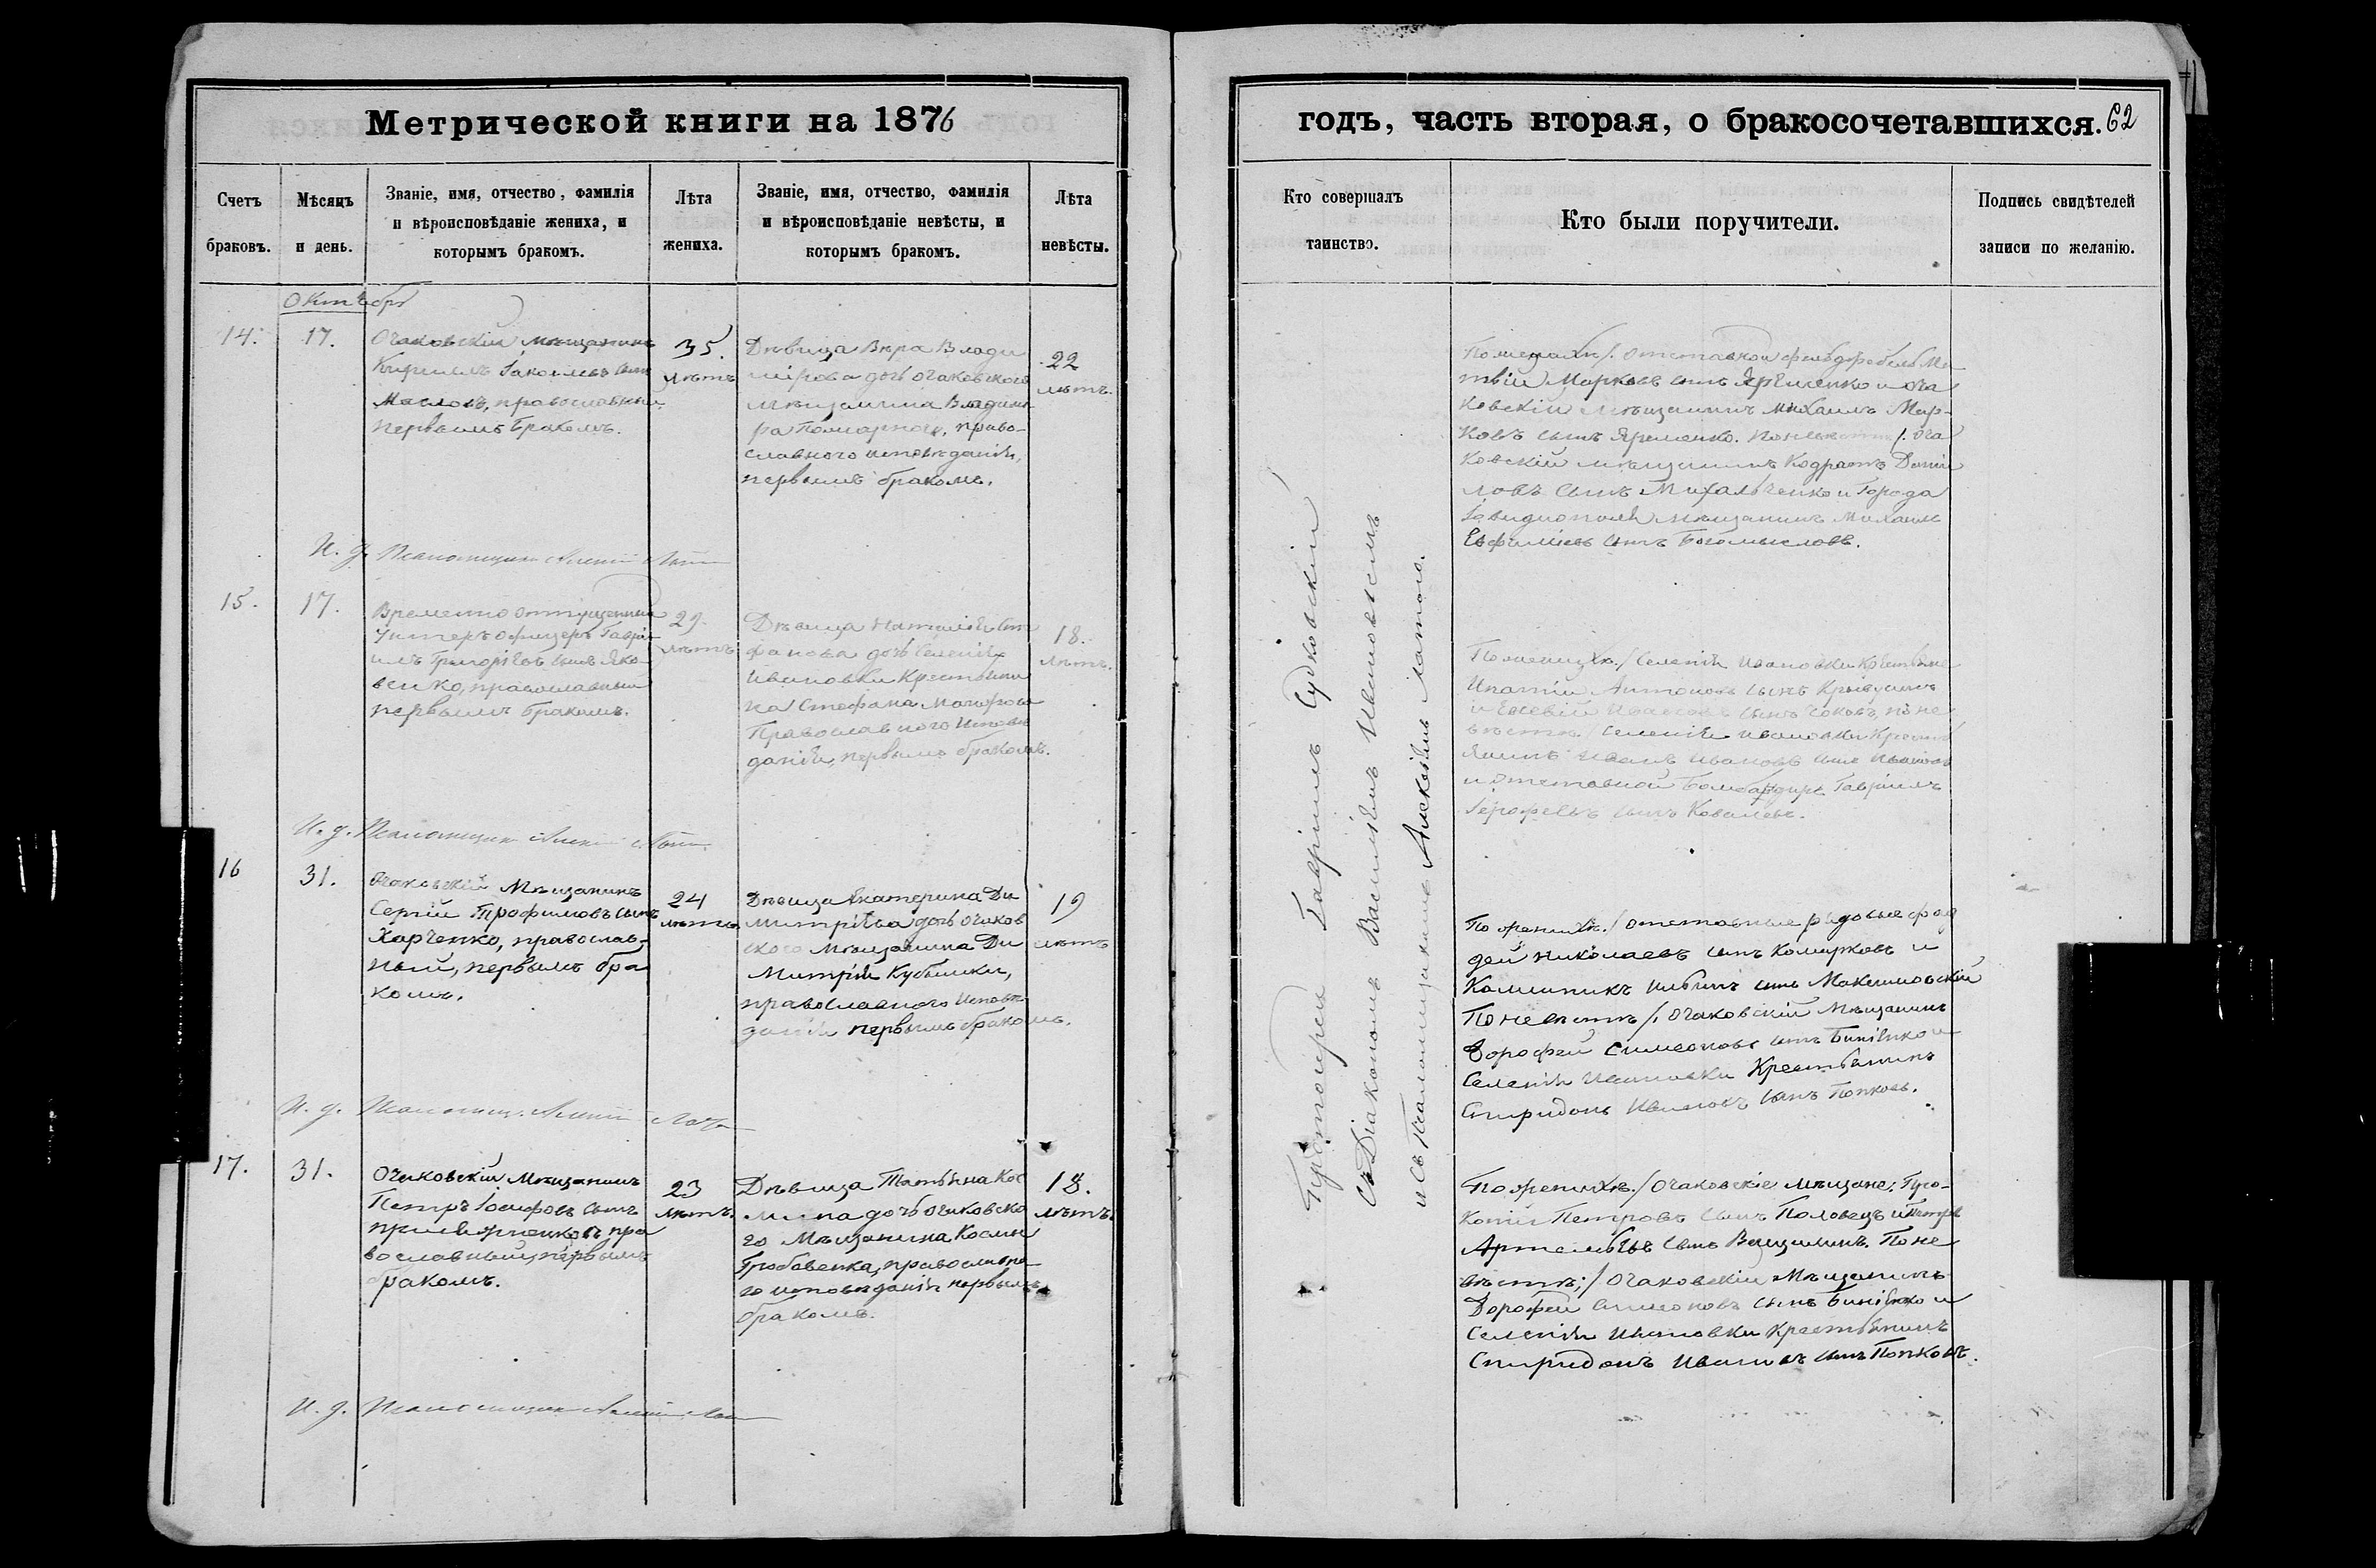 Метрической книги на 1876
годъ, часть вторая, о бракосочетавшихся. 62
Счетъ браковъ.
Мѣсяцъ и день.
Званіе, имя, отчество, фамилія
и вѣроисповѣданіе жениха, и
которымъ бракомъ.
Лѣта жениха.
Званіе, имя, отчество, фамилія
и вѣроисповѣданіе невѣсты, и
которымъ бракомъ.
Лѣта невѣсты.
Кто совершалъ таинство.
Кто были поручители.
Подпись свидѣтелей
записи по желанію.
Октябрь
14.
17.
Очаковскій мѣщанинъ
Кириллъ Іаковлевъ сынъ
Масловъ, православный,
первымъ бракомъ.
35.
лѣтъ
Дѣвица Вѣра Влади
мірова дочь очаковскаго
мѣщанина Владимі
ра, право-
славнаго исповѣданія,
первымъ бракомъ.
22
лѣтъ.
По женихѣ/. отставной фельдфебель Ма
твій Марковъ сынъ Яременко и оча
ковскій мѣщанинъ Михаилъ Мар-
ковъ сынъ Яременко. по невѣстѣ/. оча
ковскій мѣщанинъ Кодратъ Дании
ловъ сынъ Михальченко и города
Овидиополя мѣщанинъ Михаилъ
Евфиміевъ сынъ Богомысловъ.
И. д. Псаломщика
15.
17.
Временно отпущенный
унтеръ офицеръ Гаврі
илъ Григорьевъ сынъ Яко
венко, православный
первымъ бракомъ.
29.
лѣтъ
Дѣвица Наталія Сте
фанова дочь селенія
Ивановки крестьяни
на Стефана
Православнаго исповѣ
данія, первымъ бракомъ.
18.
лѣтъ.
По женихѣ./ селенія Ивановки крестьяне
Ипатій Антоновъ сынъ
и Ивановъ сынъ по не
вѣстѣ/ селенія Ивановки крестья
янинъ Иванъ Ивановъ сынъ
и отставной бомбардиръ Гавріилъ
сынъ Ковалевъ.
И. д. Псаломщика
16
31.
Очаковскій Мѣщанинъ
Сергій Трофимовъ сынъ
Харченко, православ-
ный, первымъ бра
комъ.
24
лѣтъ.
Дѣвица Екатерина Ди
митріева дочь очаков
скаго мѣщанина Ди
митрія Кубышки,
православнаго исповѣ
данія первымъ бракомъ.
19
лѣтъ
По женихѣ./ отставные рядовые Фад
дей Николаевъ сынъ Комирковъ и
сынъ Максимовскій
По невѣстѣ/. очаковскій мѣщанинъ
Дорофей Симеоновъ сынъ и
селенія Ивановки крестьянинъ
Спиридонъ Ивановъ сынъ Попковъ.
И. д. Псаломщ.
17.
31.
Очаковскій мѣщанинъ
Петръ Іосифовъ сынъ
пра
вославный, первымъ
бракомъ.
23
лѣтъ.
Дѣвица Татьяна Кос
мина дочь очаковска
го мѣщанина Космы
православна
го исповѣданія первымъ
бракомъ.
18.
лѣтъ.
По женихѣ./ Очаковскіе мѣщане:
Петровъ сынъ Половецъ и Петръ
Артемьевъ сынъ По не
вѣстѣ:/ Очаковскій мѣщанинъ
Дорофей Симеоновъ сынъ и
селенія Ивановки крестьянинъ
Спиридонъ Ивановъ сынъ Попковъ.
И. д. Псаломщика
Протоіерей Гавріилъ Судковскій
съ Діакономъ Василіемъ Ивановымъ
и съ Псаломщикомъ Алексѣемъ